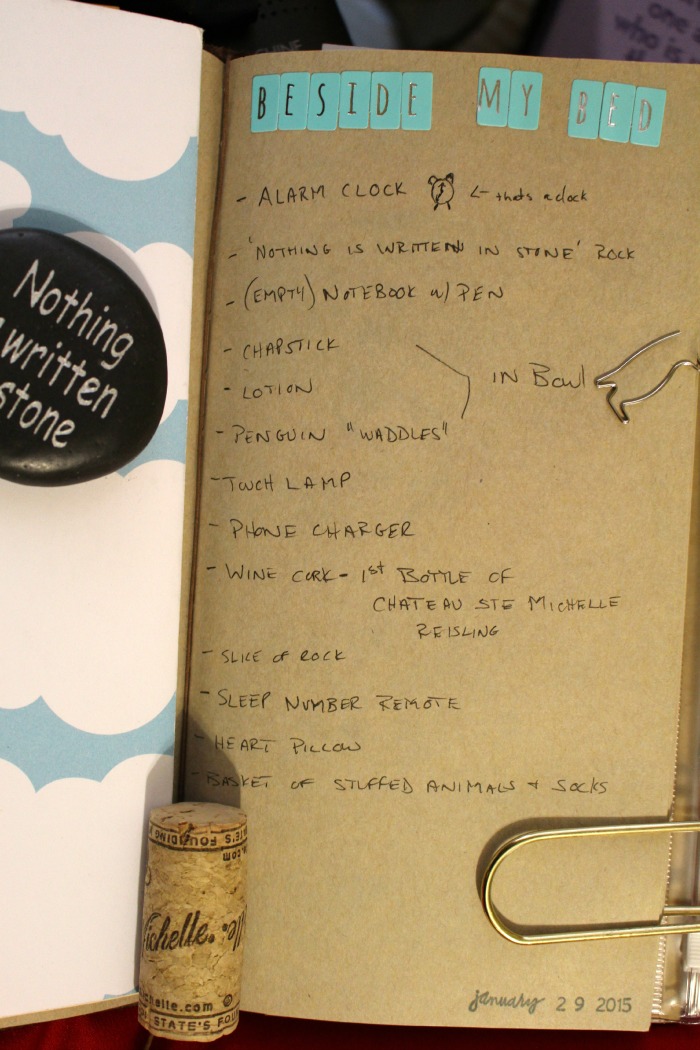 BESIDE MY BED
- ALARM CLOCK <- thats a clock
- 'NOTHING IS WRITTEN IN STONE' ROCK
- (EMPTY) NOTEBOOK w/ PEN
- CHAPSTICK
- LOTION
IN BOWL
- PENGUIN "WADDLES"
- TOUCH LAMP
- PHONE CHARGER
- WINE CORK - 1st BOTTLE OF
CHATEAU STE MICHELLE
REISLING
- SLICE OF ROCK
- SLEEP NUMBER REMOTE
- HEART PILLOW
- BASKET OF STUFFED ANIMALS + SOCKS
january 29 2015
Nothing
written
stone
ichelle.
ichelle.com ©
STATE'S FOU
one
who is